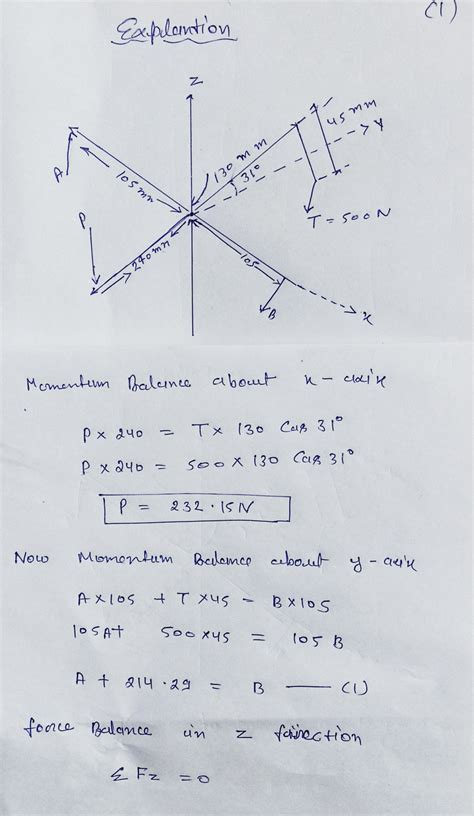 (1)
Explantion
Z
45 mm
Y
130 mm
31°
A
105 mm
T = 500 N
P
240 mm
105
B
x
Momentum Balance about x - axix
P x 240 = T x 130 Cos 31°
P x 240 = 500 x 130 Cos 31°
P = 232.15 N
Now Momentum Balance about y - axix
A x 105 + T x 45 - B x 105
105A + 500 x 45 = 105 B
A + 214.29 = B — (1)
force Balance in z
Σ Fz = 0